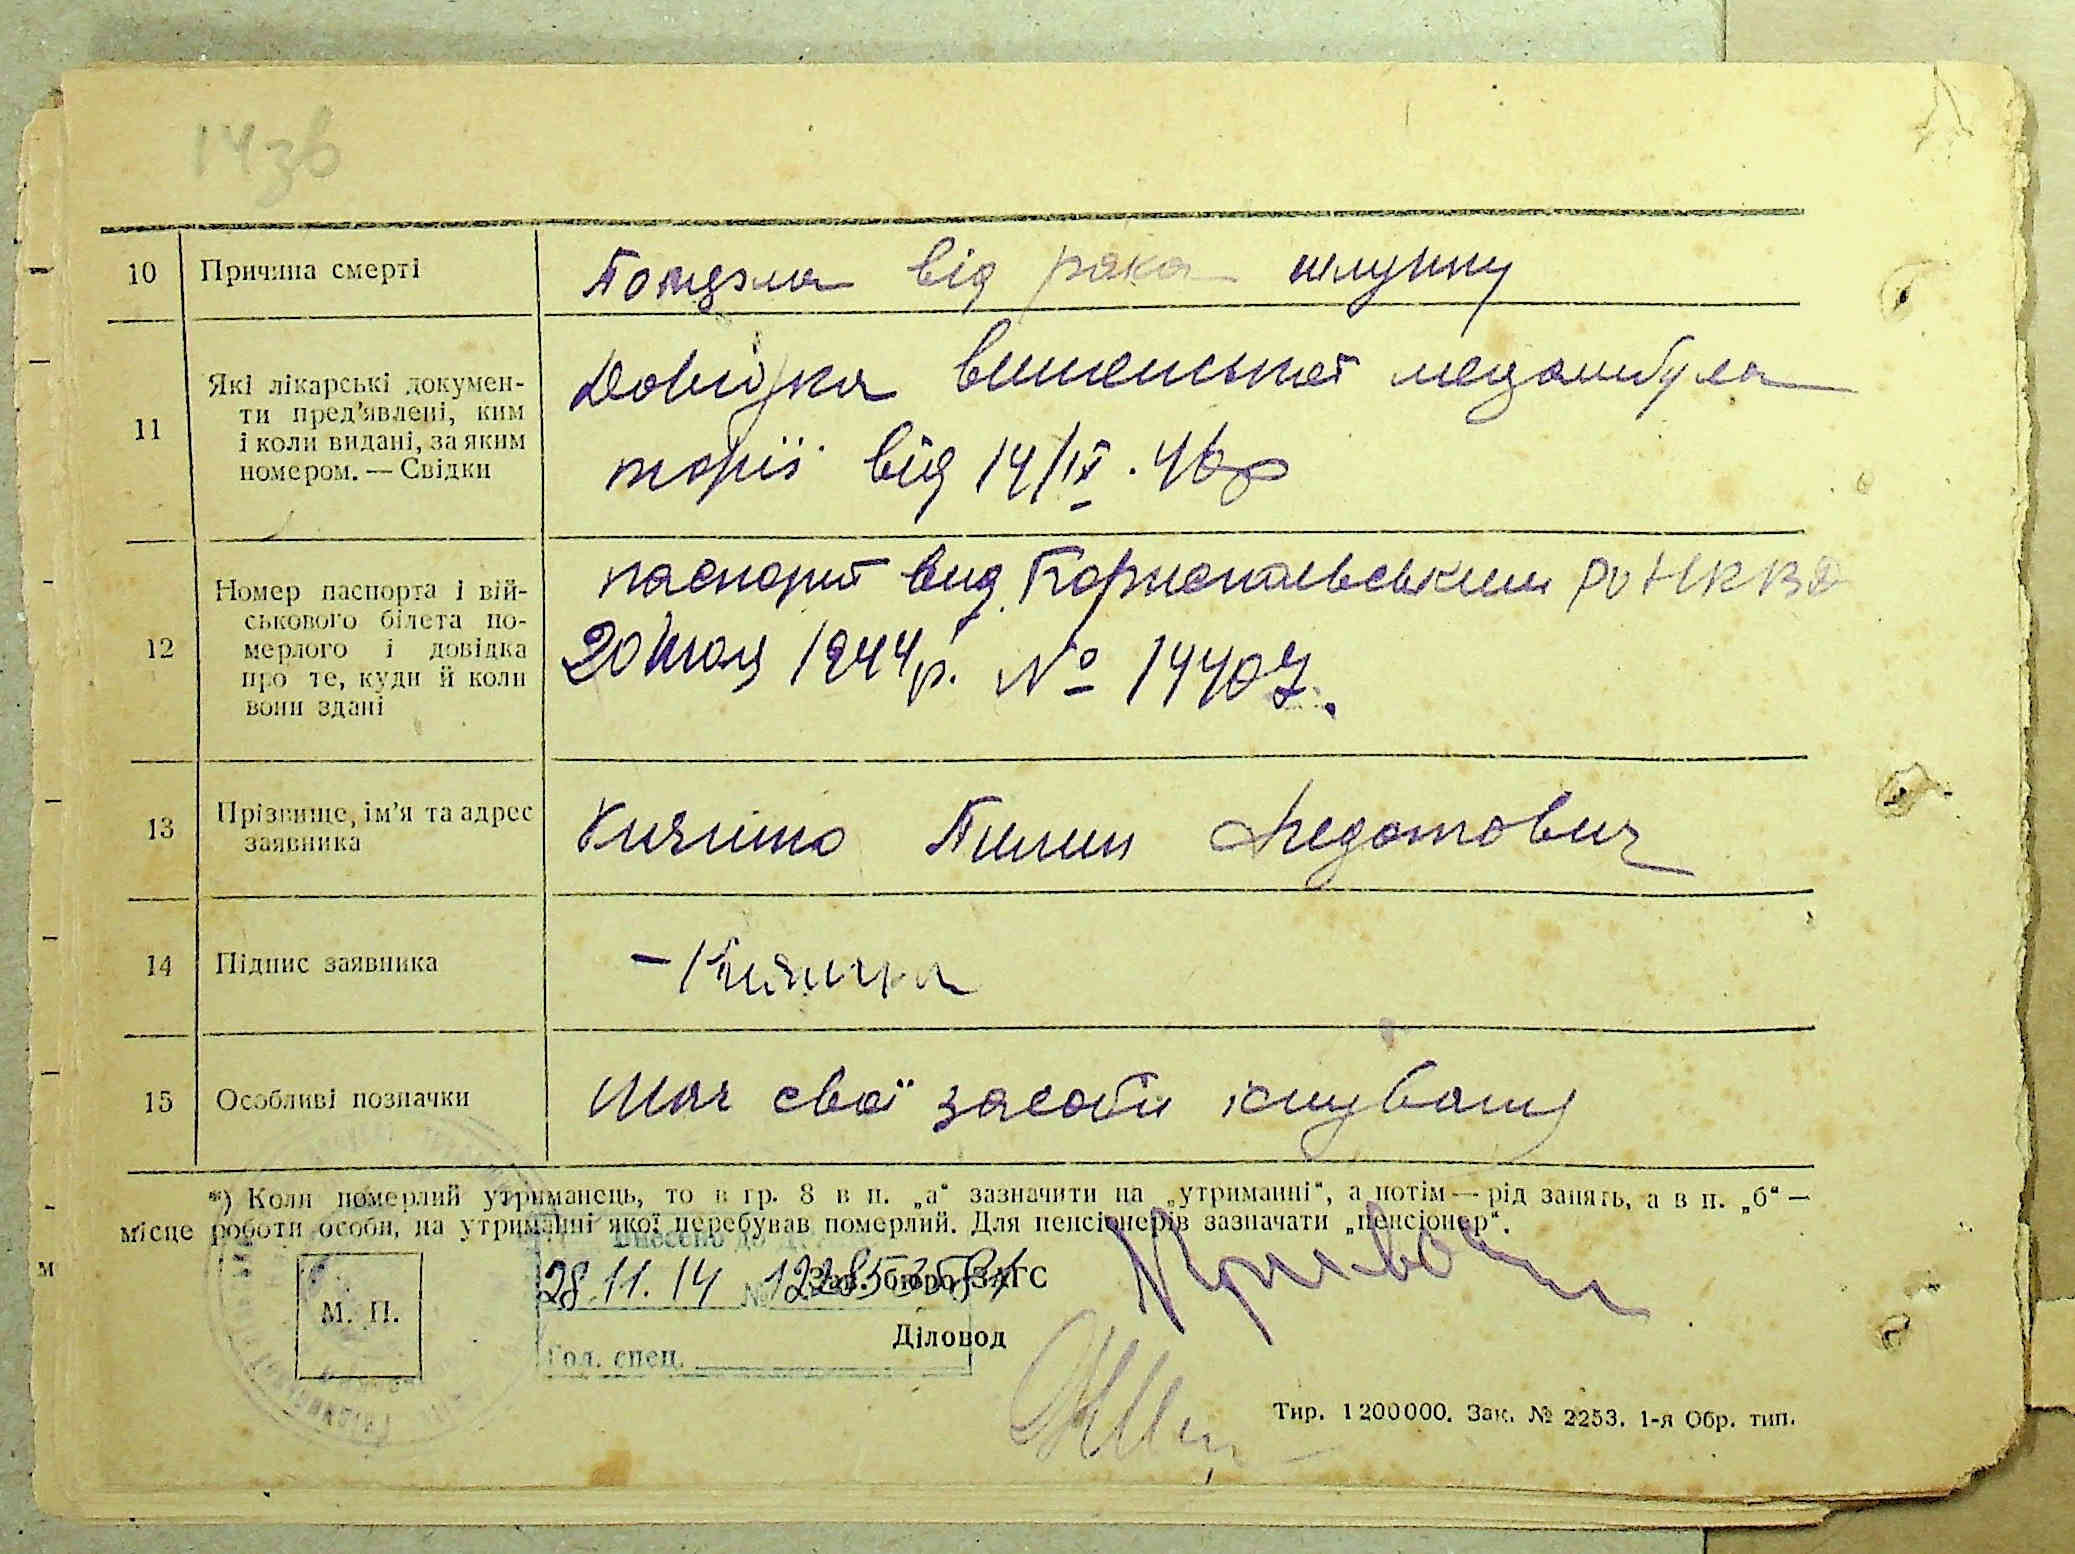 14зв
10 Причина смерті
Померла від рака шлунку
11 Які лікарські докумен-
ти пред'явлені, ким
і коли видані, за яким
номером. — Свідки
Довідка вишенської медамбула
торії від 14/IX. 46р
12 Номер паспорта і вій-
ськового білета по-
мерлого і довідка
про те, куди й коли
вони здані
паспорт вид. РО НКВД
20 1944р. № 14407.
13 Прізвище, ім'я та адрес
заявника
Кияшко Пилип Федотович
14 Підпис заявника
15 Особливі позначки
Має свої засоби існування
*) Коли померлий утриманець, то в гр. 8 в п. „а“ зазначити на „утриманні“, а потім — рід занять, а в п. „б“ —
місце роботи особи, на утриманні якої перебував померлий. Для пенсіонерів зазначати „пенсіонер“.
Внесено до
28.11.14 №
Зав. бюро ЗАГС
М. П.
Діловод
Гол. спец.
Тир. 1200000. Зак. № 2253. 1-я Обр. тип.